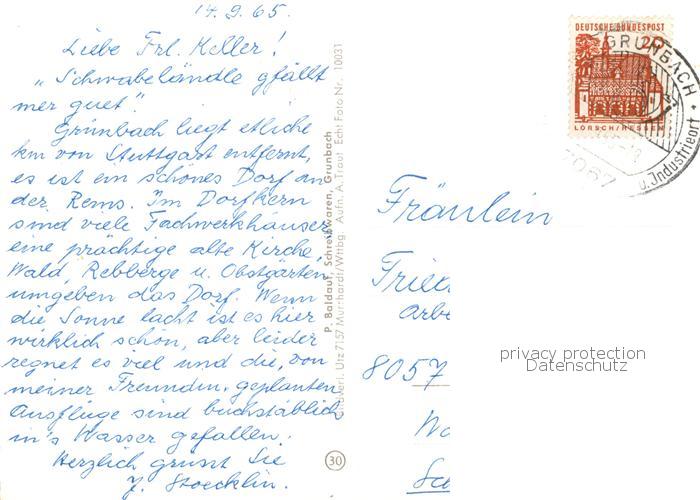 14.9.65.
Liebe Frl. Keller!
„Schwabeländle gfällt
mer guet".
Grünbach liegt etliche
km von Stuttgart entfernt,
es ist ein schönes Dorf an
der Rems. Im Dorfkern
sind viele Fachwerkhäuser,
eine prächtige alte Kirche,
Wald, Rebberge u. Obstgärten
umgeben das Dorf. Wenn
die Sonne lacht ist es hier
wirklich schön, aber leider
regnet es viel und die, von
meiner Freundin, geplanten
Ausflüge sind buchstäblich
in's Wasser gefallen.
Herzlich grüsst Sie
J. Stoecklin.
P. Baldauf, Schreibwaren, Grunbach
Utz 7157 Murrhardt/Wttbg Aufn. A. Traut Echt Foto Nr. 10031
30
DEUTSCHE BUNDESPOST
20
LORSCH/HESSEN
GRUNBACH
u. Industrieort
7067
Fräulein
8057
privacy protection
Datenschutz